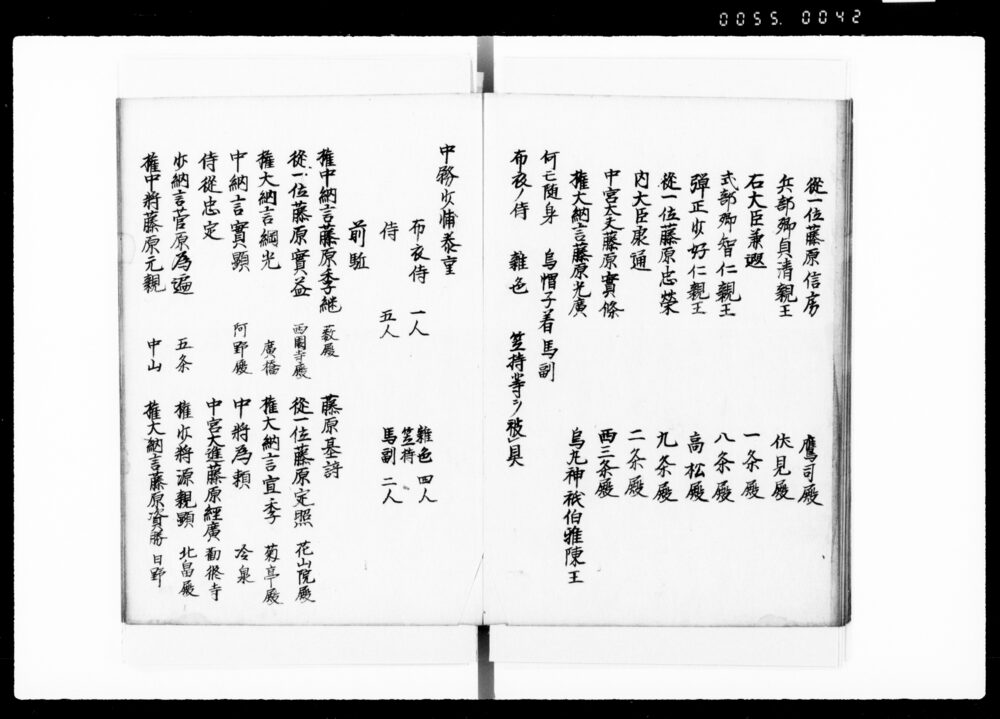 0055.0042
従一位藤原信房　鷹司殿
兵部卿貞清親王　伏見殿
右大臣兼遐　一条殿
式部卿智仁親王　八条殿
弾正少好仁親王　高松殿
従一位藤原忠栄　九条殿
内大臣康通　二条殿
中宮大夫藤原實條　西三条殿
権大納言藤原光廣　烏丸神祇伯雅陳王
何モ随身　烏帽子着馬副
布衣ノ侍　雑色　笠持等ヲ被具
中務少輔泰重
布衣侍　一人　雑色　四人
笠持
侍　五人　馬副　二人
前駈
権中納言藤原季継　薮殿　藤原基詩
従一位藤原實益　西園寺殿　従一位藤原定照　花山院殿
権大納言綱光　廣橋　権大納言宣季　菊亭殿
中納言實顕　阿野殿　中将為頼　冷泉
侍従忠定　中宮大進藤原經廣　勧修寺
少納言菅原為適　五条　権少将源親顕　北畠殿
権中将藤原元親　中山　権大納言藤原資勝　日野